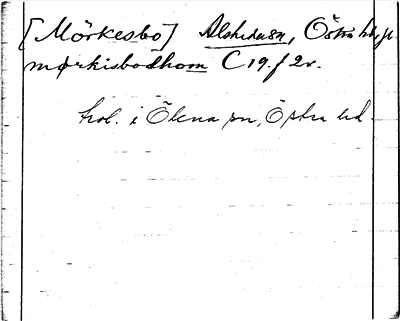 [Mörkesbo] Alsheda sn, Östra hd, Jk
mørkisbodhom C 19. f 2v.
hol. i Ökna sn, Östra hd.